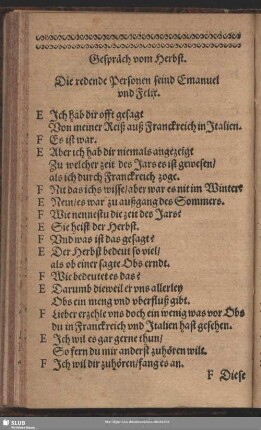 Gespräch vom Herbst.
Die redende Personen seind Emanuel
vnd Felix.
E Ich hab dir offt gesagt
Von meiner Reiß auß Franckreich in Italien.
F Es ist war.
E Aber ich hab dir niemals angezeigt
Zu welcher zeit des Jars es ist gewesen/
als ich durch Franckreich zoge.
F Nit das ichs wisse/aber war es nit im Winter?
E Nein/es war zu außgang des Sommers.
F Wie nennestu die zeit des Jars?
E Sie heist der Herbst.
F Vnd was ist das gesagt?
E Der Herbst bedeut so viel/
als ob einer sagte Obs erndt.
F Wie bedeutet es das?
E Darumb dieweil er vns allerley
Obs ein meng vnd vberfluß gibt.
F Lieber erzehle vns doch ein wenig was vor Obs
du in Franckreich vnd Italien hast gesehen.
E Ich wil es gar gerne thun/
So fern du mir anderst zuhören wilt.
F Ich wil dir zuhören/fang es an.
F Diese
SLUB